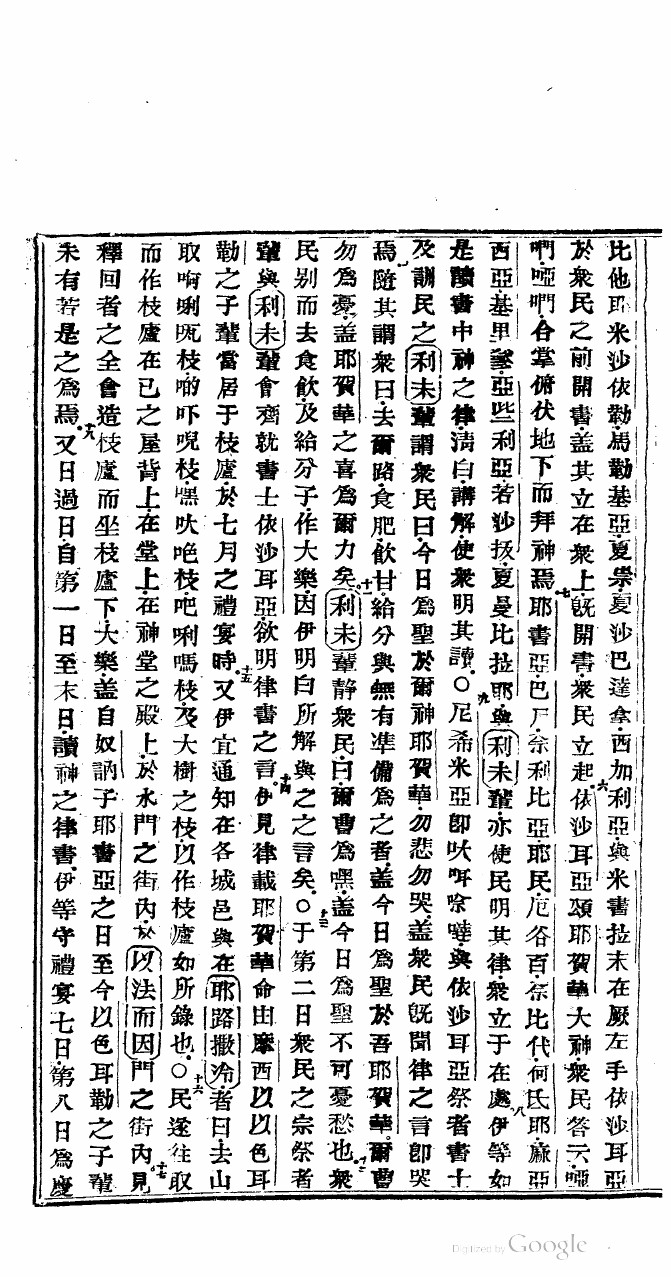 比他耶米沙依勒馬勒基亞夏崇夏沙巴達拿西加利亞與米書拉末在厥左手依沙耳亞
於衆民之前開書蓋其立在衆上既開書衆民立起依沙耳亞頌耶賀華大神衆民答云啞
啊啞們合掌俯伏地下而拜神焉耶書亞巴尸利比亞耶民厄谷百比代何氐耶麻亞
西亞基里亞些利亞若沙拔夏曼比拉耶與利未輩亦使民明其律衆立于在處伊等如
是讀書中神之律淸白講解使衆明其讀〇尼希米亞卽吠咡噠與依沙耳亞祭者書士
及訓民之利未輩謂衆民曰今日爲聖於爾神耶賀華勿悲勿哭蓋衆民旣聞律之言卽哭
焉隨其謂衆曰去爾路食肥飮甘給分與無有準備爲之者蓋今日爲聖於吾耶賀華爾曹
勿爲憂蓋耶賀華之喜爲爾力矣利未輩靜衆民曰爾曹爲嘿蓋今日爲聖不可憂愁也衆
民別而去食飮及給分子作大樂因伊明白所解與之之言矣〇于第二日衆民之宗祭者
輩與利未輩會齊就書士依沙耳亞欲明律書之言伊見律載耶賀華命由摩西以以色耳
勒之子輩當居于枝廬於七月之禮宴時又伊宜通知在各城邑與在耶路撒冷者曰去山
取唎枝吓唲枝嘿吠枝吧唎嗎枝及大樹之枝以作枝廬如所錄也〇民遂往取
而作枝廬在己之屋背上在堂上在神堂之殿上於水門之街內於以法而因門之街內見
釋回者之全會造枝廬而坐枝廬下大樂蓋自奴訥子耶書亞之日至今以色耳勒之子輩
未有若是之爲焉又日過日自第一日至末日讀神之律書伊等守禮宴七日第八日爲慶
六
七
八
九
十一
十二
十三
十四
十五
十六
十七
十八
Digitized by Google